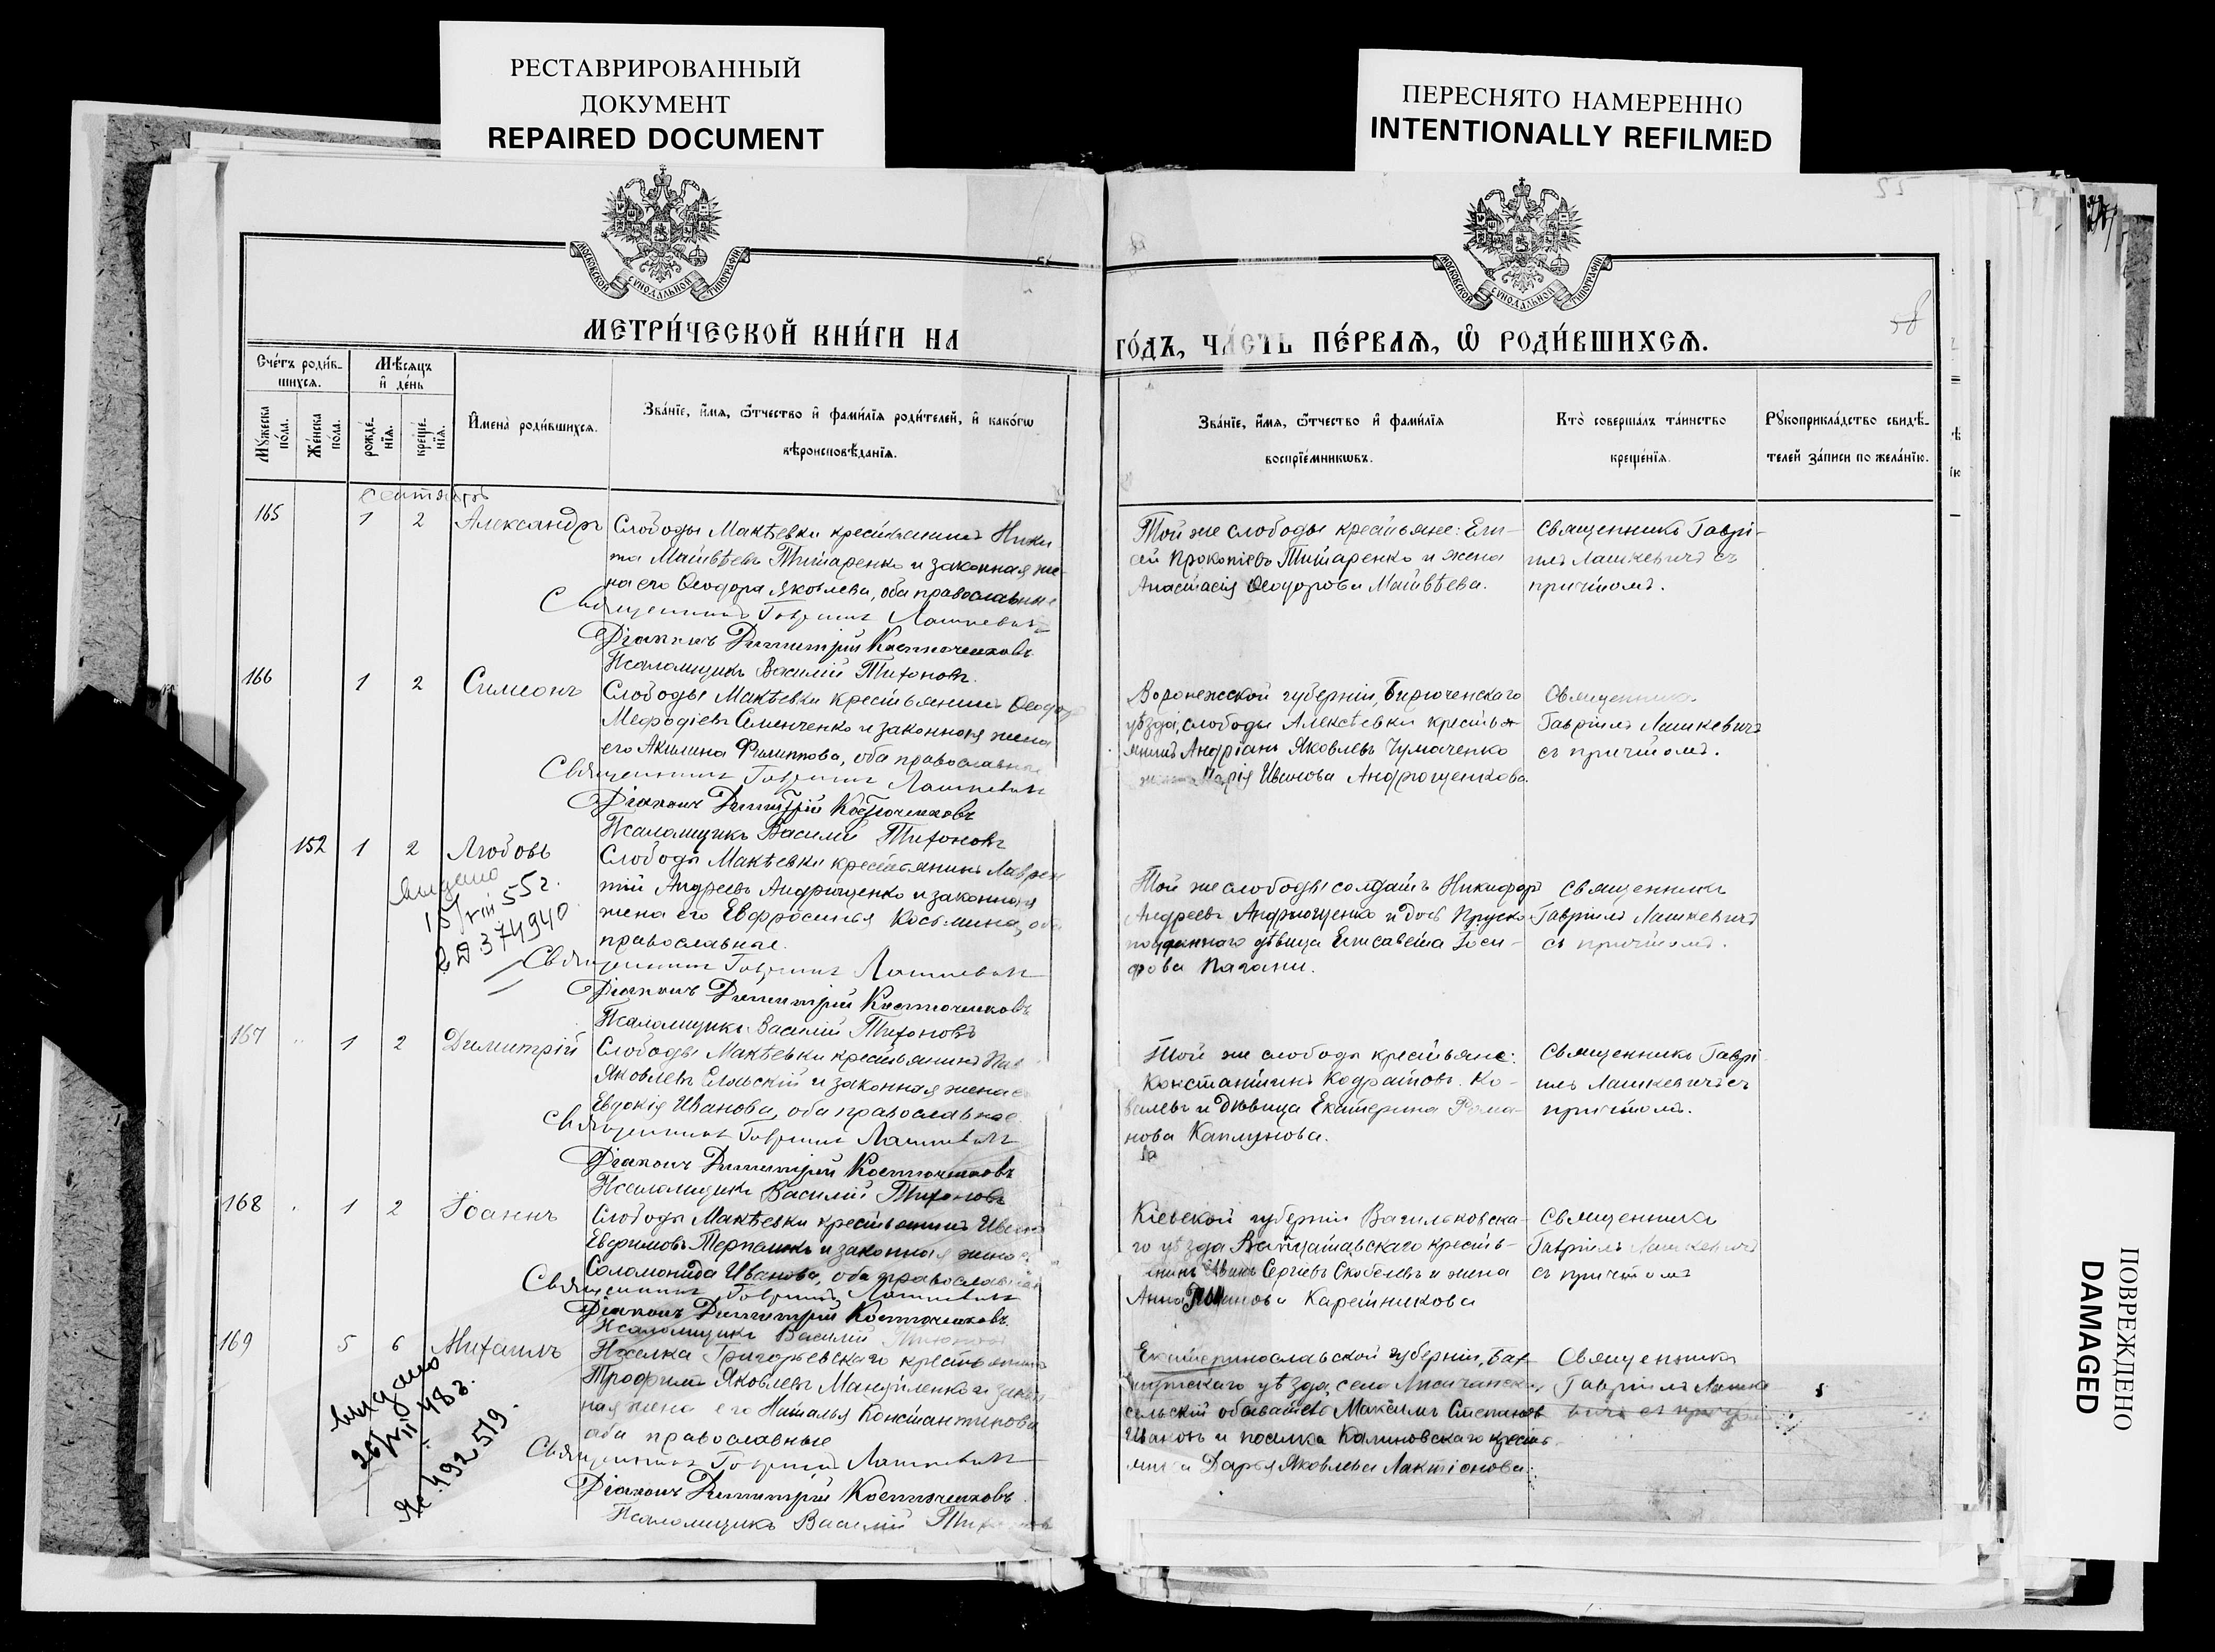 РЕСТАВРИРОВАННЫЙ
ДОКУМЕНТ
REPAIRED DOCUMENT
ПЕРЕСНЯТО НАМЕРЕННО
INTENTIONALLY REFILMED
55
58
МОСКОВСКОЙ СУНОДАЛЬНОЙ ТИПОГРАФІИ
МОСКОВСКОЙ СУНОДАЛЬНОЙ ТИПОГРАФІИ
МЕТРИ́ЧЕСКОЙ КНИ́ГИ НА
ГО́ДЪ, ЧА́СТЬ ПЕ́РВАѦ, Ѡ҆ РОДИ́ВШИХСѦ.
Сче́тъ роди́в-
шихсѧ.
Мꙋ́жеска по́ла.
Же́нска по́ла.
Мѣ́сѧцъ
и҆ де́нь
рожде́-
нїѧ.
креще́-
нїѧ.
И҆мена̀ роди́вшихсѧ.
Зва́нїе, и҆́мѧ, ѻ҆́тчество и҆ фами́лїѧ роди́телей, и҆ како́гѡ
вѣроисповѣ́данїѧ.
Зва́нїе, и҆́мѧ, ѻ҆́тчество и҆ фами́лїѧ
воспрїе́мникѡвъ.
Кто̀ соверша́лъ та́инство
креще́нїѧ.
Рꙋкоприкла́дство свидѣ́-
телей за́писи по жела́нїю.
Сентябрь
165 1 2 Александръ
Слободы Макѣевки крестьянинъ Ники
та Матвѣевъ Титаренко и законная же-
на его Ѳеодора Яковлева, оба православные
Священникъ Гавріилъ Лашкевичъ
Діаконъ Димитрій Косточенковъ
Псаломщикъ Василій Тихоновъ.
Той же слободы крестьяне: Ели-
сей Прокопіевъ Титаренко и жена
Анастасія Ѳеодорова Матвѣева.
Священникъ Гаврі-
илъ Лашкевичъ съ
причтомъ.
166 1 2 Симеонъ
Слободы Макѣевки крестьянинъ Ѳеодор
Меѳодіевъ Семенченко и законная жена
его Акилина Филиппова, оба православные
Священникъ Гавріилъ Лашкевичъ
Діаконъ Димитрій Косточенковъ
Псаломщикъ Василій Тихоновъ
Воронежской губерніи, Бирюченскаго
уѣзда, слободы Алексѣевки крестья
нинъ Андріанъ Яковлевъ Чумаченко
Марія Иванова Андрющенкова.
Священникъ
Гавріилъ Лашкевичъ
съ причтомъ.
152 1 2 Любовь
Слободы Макѣевки крестьянинъ Лаврен
тій Андреевъ Андрющенко и законная
жена его Евфросинья Косьмина, оба
православные.
Священникъ Гавріилъ Лашкевичъ
Діаконъ Димитрій Косточенковъ
Псаломщикъ Василій Тихоновъ
Выдано
15/VIII 55 г.
374940
Той же слободы солдатъ Никифоръ
Андреевъ Андрющенко и дочь Пруско
подданнаго дѣвица Елисавета Іоси-
фова Пагани.
Священникъ
Гавріилъ Лашкевичъ
съ причтомъ.
167 1 2 Димитрій
Слободы Макѣевки крестьянинъ
Яковлевъ Ельскій и законная жена е
Евдокія Иванова, оба православные.
Священникъ Гавріилъ Лашкевичъ
Діаконъ Димитрій Косточенковъ
Псаломщикъ Василій Тихоновъ
Той же слободы крестьяне:
Константинъ Кодратовъ Ко-
валевъ и дѣвица Екатерина Рома-
нова Каплунова.
Священникъ Гаврі-
илъ Лашкевичъ съ
причтомъ.
168 1 2 Іоаннъ
Слободы Макѣевки крестьянинъ Иванъ
Евфимовъ и законная жена е
Соломонида Иванова, оба православные
Священникъ Гавріилъ Лашкевичъ
Діаконъ Димитрій Косточенковъ.
Псаломщикъ Василій Тихоновъ
Кіевской губерніи Васильковска-
го уѣзда крестья-
нинъ Иванъ Сергіевъ Скобелевъ и жена
Анна
Священникъ
Гавріилъ Лашкевичъ
съ причтомъ
169 5 6 Михаилъ
Поселка Григорьевскаго крестьянинъ
Трофимъ Яковлевъ Мануйленко и закон
ная жена его Наталья Константинова
оба православные
Священникъ Гавріилъ Лашкевичъ
Діаконъ Димитрій Косточенковъ
Псаломщикъ Василій
выдано
26/VII 48 г.
492519.
Екатеринославской губерніи, Бах
мутскаго уѣзда, села Лисичанска,
сельскій обыватель Максимъ Степановъ
Ивановъ и поселка Калиновскаго
Дарья Яковлева Лактіонова.
Священникъ
Гавріилъ Лашке
вичъ съ
ПОВРЕЖДЕНО
DAMAGED